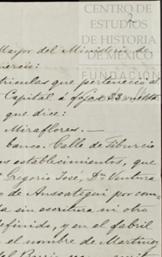 CENTRO DE
ESTUDIOS
DE HISTORIA
DE MÉXICO
FUNDACIÓN
Mayor del Ministerio de
mercio:
triculas que perteneció a
Capital á fojas 33 vuelta
que dice:
Miraflores. —
banco. Calle de Tiburcio
os establecimientos, que
Gregorio José, Dn. Ventura
de Ansoategui por com
ia sin escritura ni otro
definido, y en el fabril
el nombre de Martinez